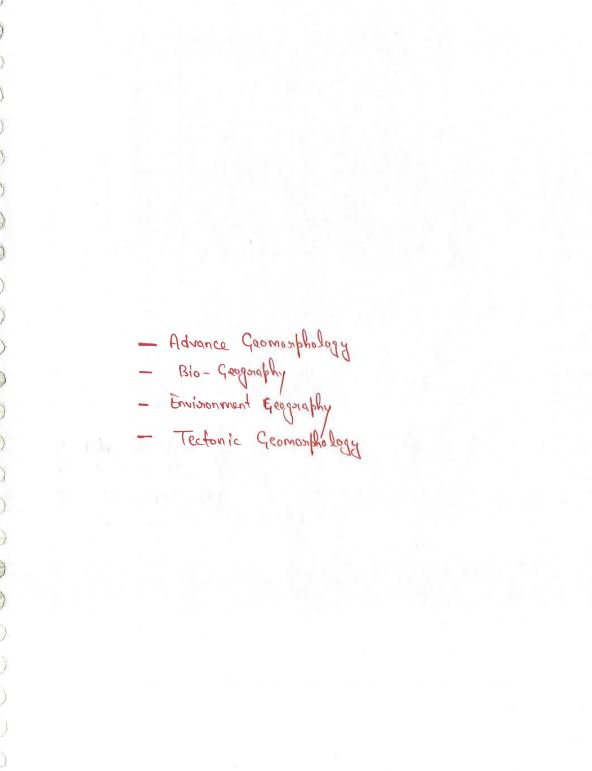 — Advance Geomorphology
— Bio - Geography
— Environment Geography
— Tectonic Geomorphology